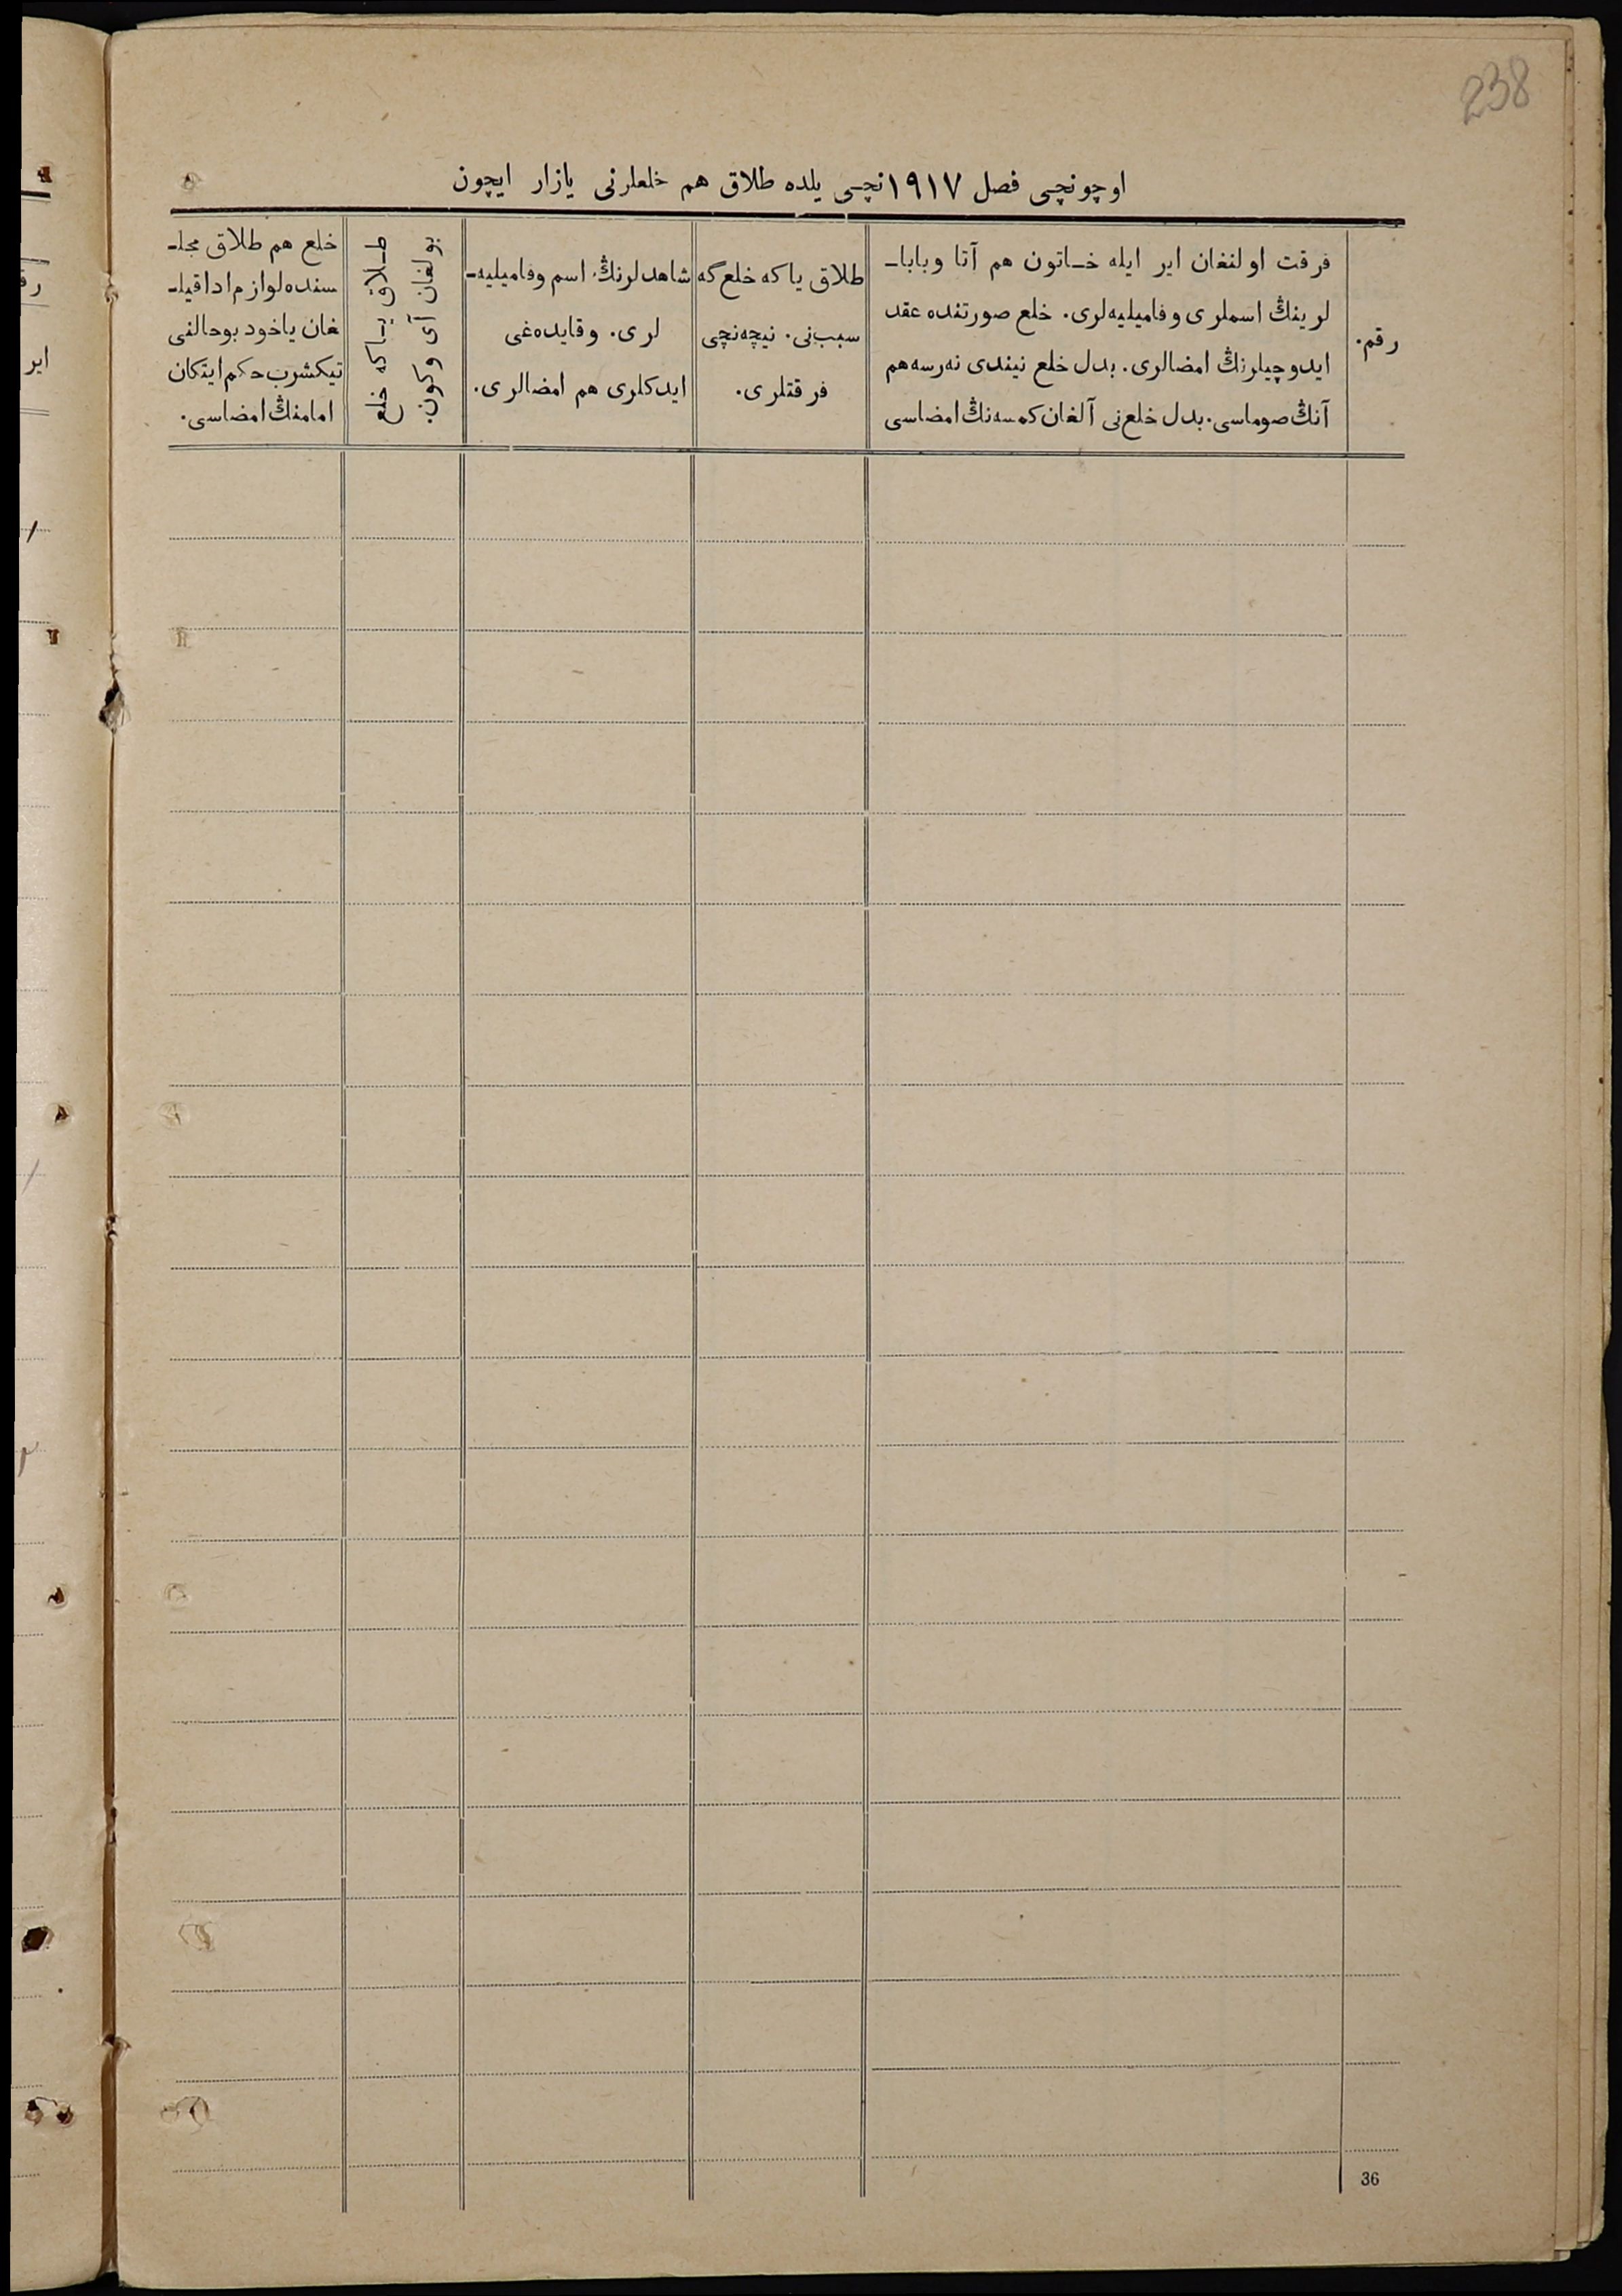 238
اوچونچی فصل ١٩١٧نچی یلده طلاق هم خلعلرنی یازار ایچون
رقم.
فرقت اولنغان ایر ایله خـاتون هم آتا وبابا-
لرینڭ اسملری وفامیلیه‌لری. خلع صورتنده عقد
ایدوچیلرنڭ امضالری. بدل خلع نیندی نه‌رسه هم
آنڭ صوماسی. بدل خلع‌نی آلغان کمسه‌نڭ امضاسی
طلاق یا که خلع گه
سبب‌نی. نیچه‌نچی
فرقتلری.
شاهدلرنڭ اسم وفامیلیه-
لری. وقایده‌غی
ایدکلری هم امضالری.
طـلاق یـاکه خلع
بولغان آی وکون.
خلع هم طلاق مجلـ
سنده لوازم ادا قیلـ
غان یاخود بوحالنی
تیکشرب حکم ایتکان
امامنڭ امضاسی.
36
رق
ایر